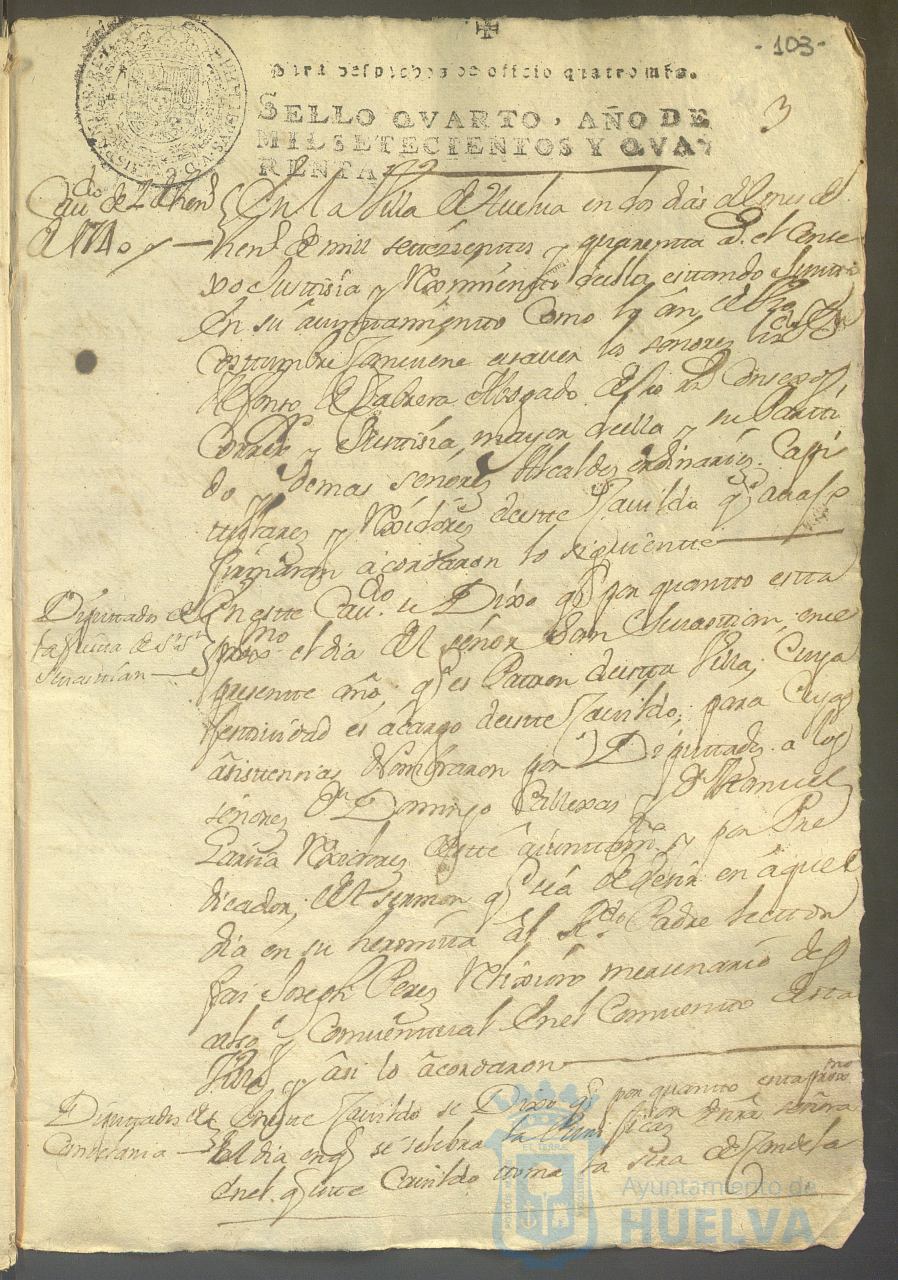 -103-
3
Para despachos de officio quatro mrs.
SELLO QVARTO, AÑO DE
MIL SETECIENTOS Y QVA
RENTA
Cav.do de 2 de hen.o
de 1740
En la Villa de Huelva en dos dias del mes de
hen.o de mill settezientos y quarenta a.s el Conse
xo Justisia y Reximiento della estando juntto
En su ayuntamiento Como lo an de
costumbre combiene a saver los señores
Alfonso de Cabrera Abogado de los R.s Consexos,
Corre.r y Justisia mayor della y su Partti
do y demas señores Alcaldes ordinarios Capi
tulares y Rexidores deste Cavildo q.e avajo
firmaran acordaron lo siguiente
Diputados de
la fiesta de S.n
Sevastian
En este Cav.do se Dixo q.e por quantto esta
prox.mo el dia del señor San Sevastian, en el
presente año, q.e es Patron desta Villa, Cuya
festividad es a cargo deste Cavildo, para Cuyas
asistencias Nombraron por Diputados a los
señores D.n Domingo y D.n Manuel
Garzia Rexidores deste ayuntam.to y por Pre
dicador, del sermon q.e se a de desir en aquel
dia en su hermita al R.do Padre lector
frai Joseph Perez Relixioso mercenario des
calso y Conventual en el Convento desta
Villa, y asi lo acordaron
Diputados de
Candelaria
En este Cavildo se Dixo q.e por quanto esta prox.mo
el dia en q.e se selebra la Purificaz.on de nra señora
en el q.e este Cavildo toma la sera de Candela
EL TERRA
Ayuntamiento de
HUELVA